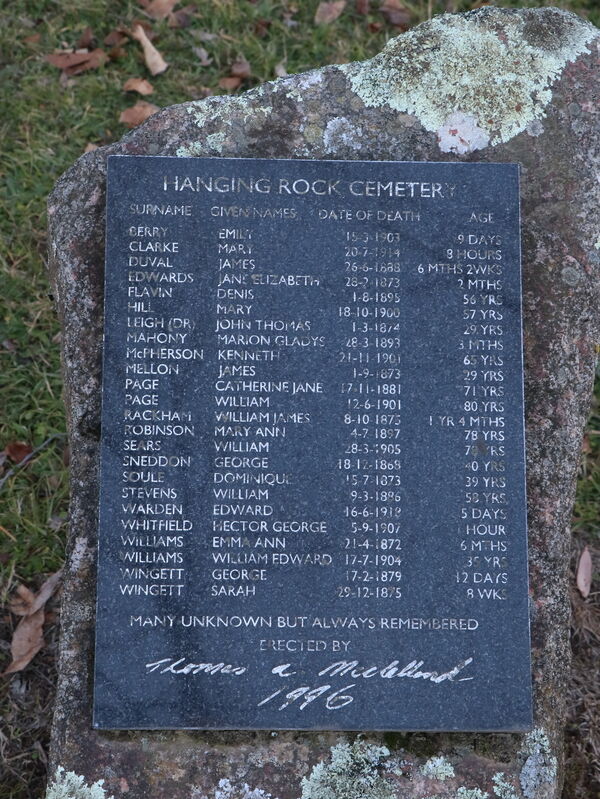 HANGING ROCK CEMETERY
SURNAME GIVEN NAMES DATE OF DEATH AGE
BERRY EMILY 15-3-1903 9 DAYS
CLARKE MARY 20-7-1914 8 HOURS
DUVAL JAMES 26-6-1888 6 MTHS 2WKS
EDWARDS JANE ELIZABETH 28-2-1873 2 MTHS
FLAVIN DENIS 1-8-1895 56 YRS
HILL MARY 18-10-1900 57 YRS
LEIGH (DR) JOHN THOMAS 1-3-1874 29 YRS
MAHONY MARION GLADYS 28-3-1893 3 MTHS
McPHERSON KENNETH 21-11-1901 65 YRS
MELLON JAMES 1-9-1873 29 YRS
PAGE CATHERINE JANE 17-11-1881 71 YRS
PAGE WILLIAM 12-6-1901 80 YRS
RACKHAM WILLIAM JAMES 8-10-1875 1 YR 4 MTHS
ROBINSON MARY ANN 4-7-1897 78 YRS
SEARS WILLIAM 28-3-1905 YRS
SNEDDON GEORGE 18-12-1868 40 YRS
SOULE DOMINIQUE 15-7-1873 39 YRS
STEVENS WILLIAM 9-3-1886 58 YRS
WARDEN EDWARD 16-6-1918 5 DAYS
WHITFIELD HECTOR GEORGE 5-9-1907 1 HOUR
WILLIAMS EMMA ANN 21-4-1872 6 MTHS
WILLIAMS WILLIAM EDWARD 17-7-1904 YRS
WINGETT GEORGE 17-2-1879 12 DAYS
WINGETT SARAH 29-12-1875 8 WKS
MANY UNKNOWN BUT ALWAYS REMEMBERED
ERECTED BY
Thomas a McClelland
1996